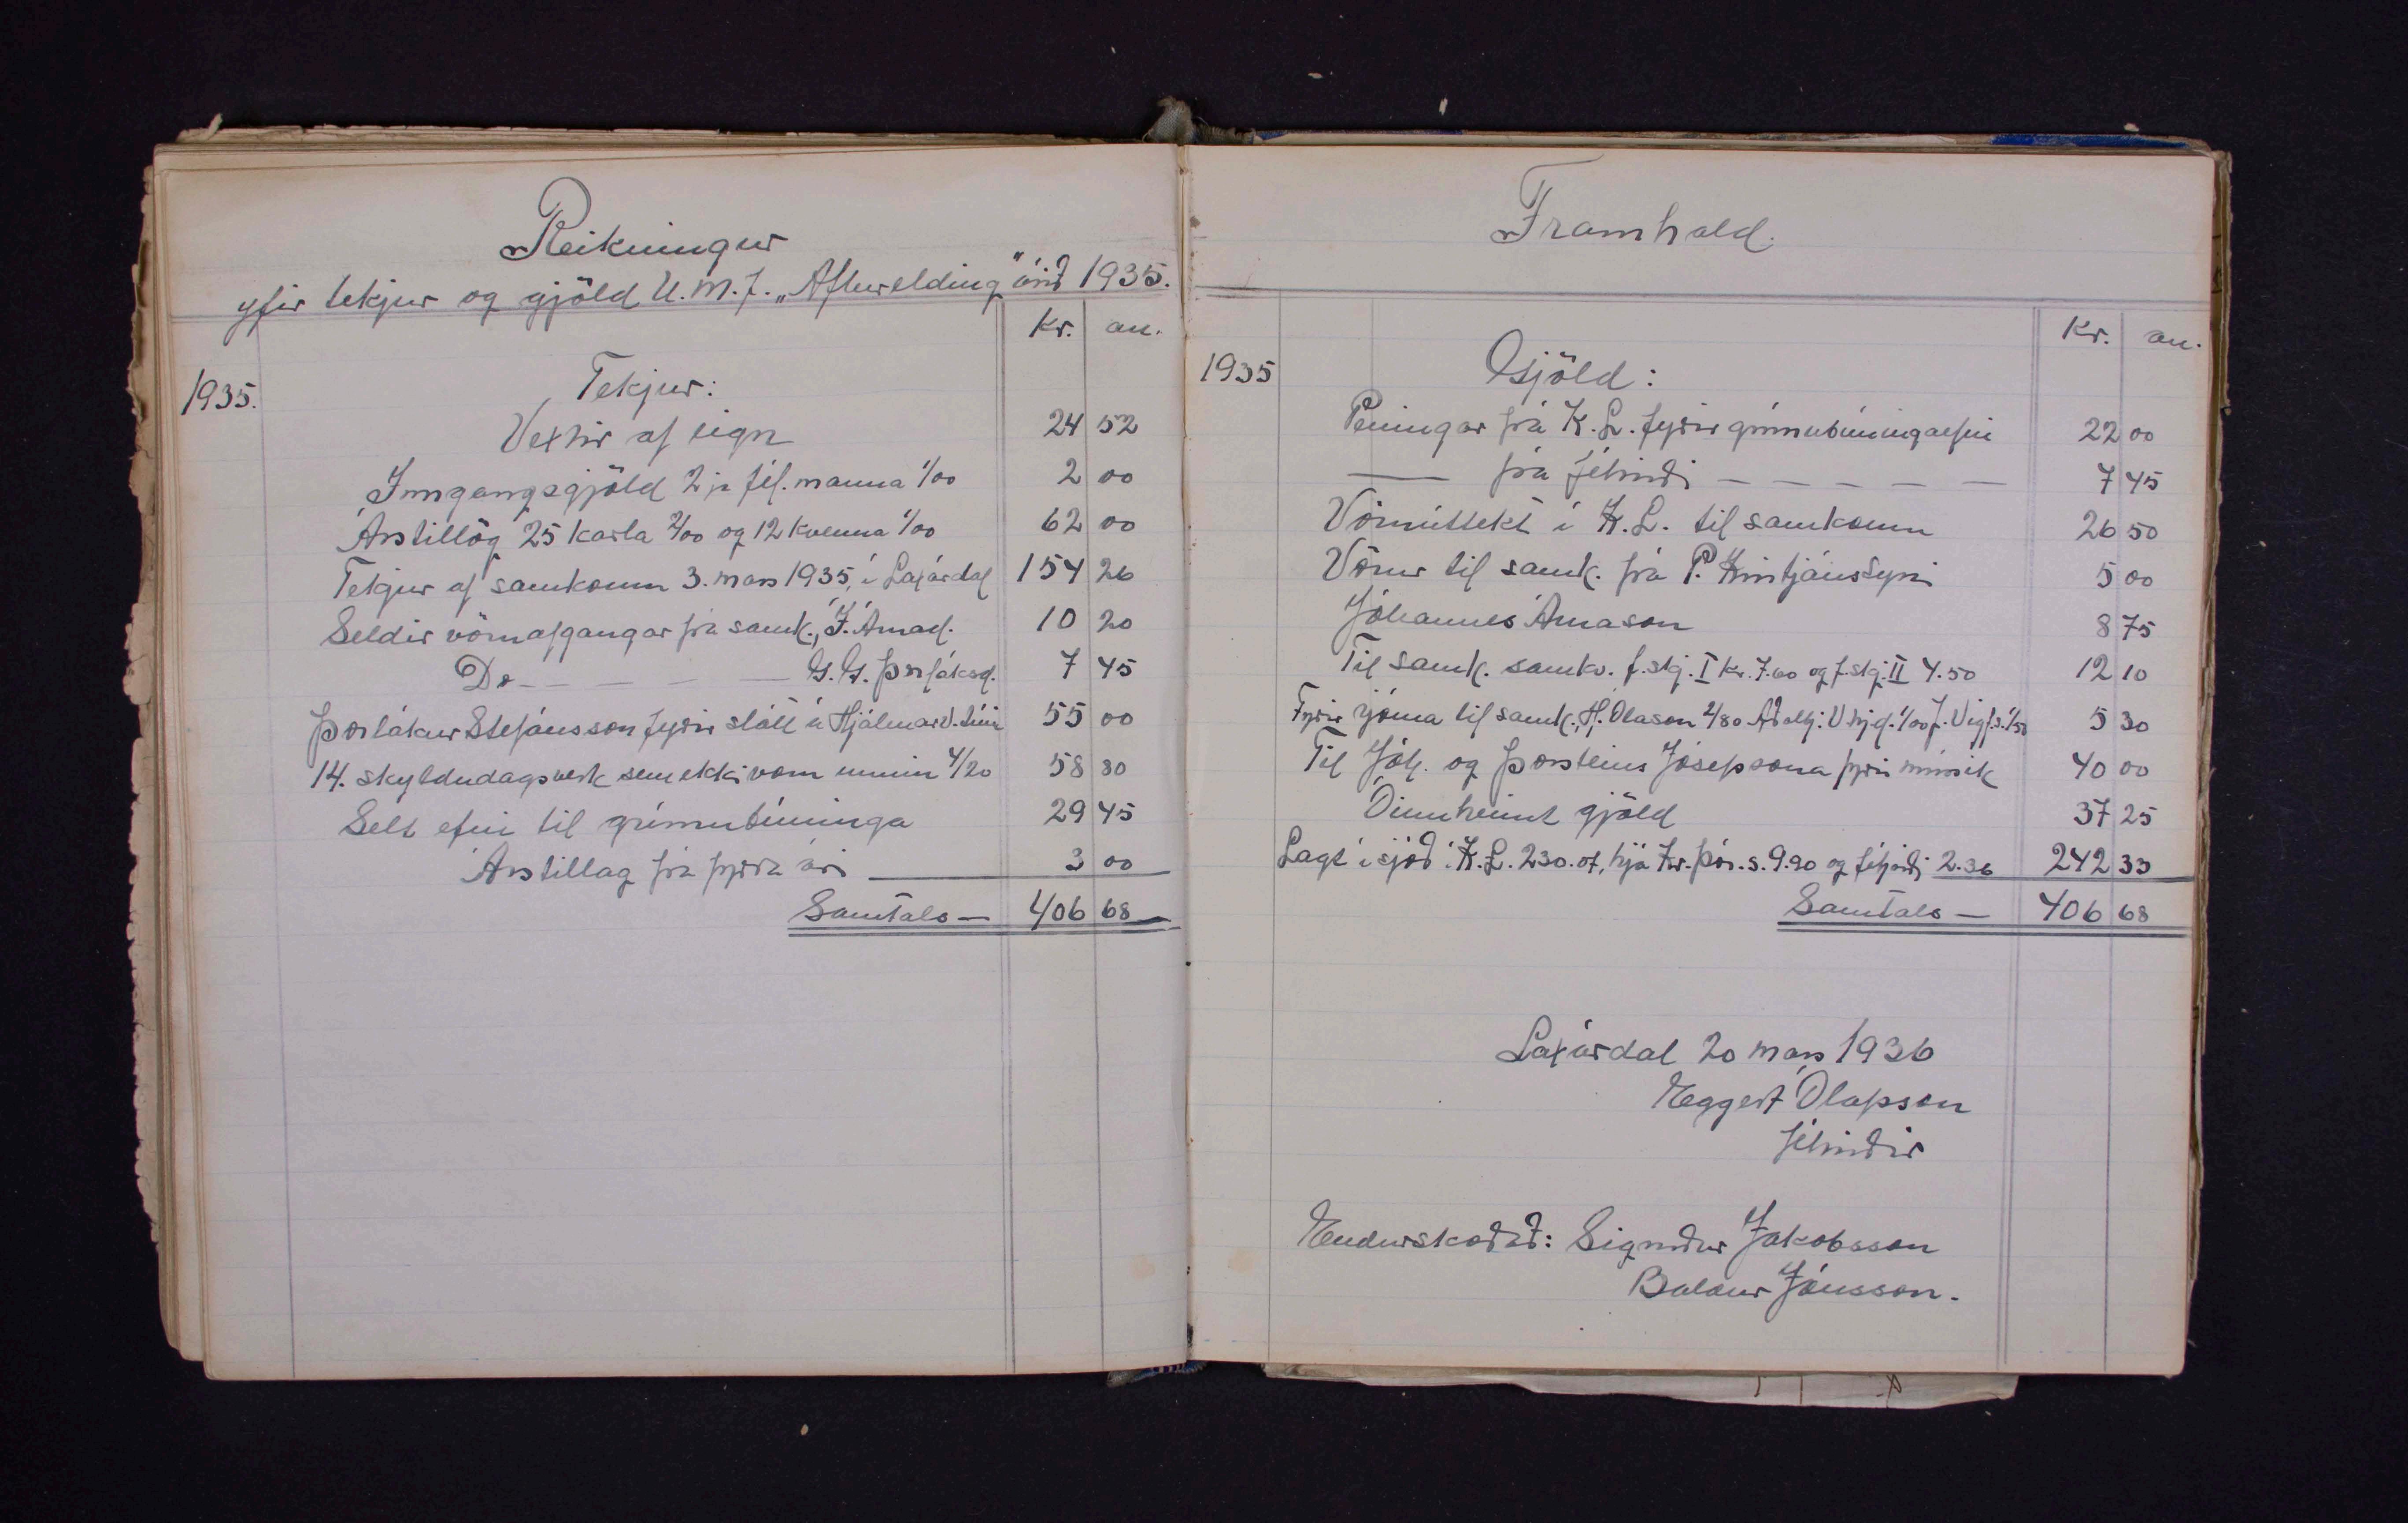 Reikningur
yfir tekjur og gjöld U.M.F. „Afturelding" árið 1935.
Kr. au.
1935. Tekjur:
Vextir af eign 24 52
Inngangsgjöld 2ja fél. manna 1/00 2 00
Árstillög 25 karla 2/00 og 12 kvenna 1/00 62 00
Tekjur af samkomu 3. mars 1935, í Laxárdal 154 26
Seldir vöruafgangar frá samk., J. Árnas. 10 20
Do — — — — — G. G. Þorláksd. 7 45
Þorlákur Stefánsson fyrir slátt á Hjálmarv. túni 55 00
14. skyldudagsverk sem ekki voru unnin 4/20 58 80
Selt efni til grímubúninga 29 45
Árstillag frá fyrra ári — 3 00
Samtals — 406 68
Framhald.
Kr. au.
1935 Gjöld:
Peningar frá K.L. fyrir grímubúningaefni 22 00
— frá féhirði — — — — — 7 45
Vöruúttekt í K.L. til samkomu 26 50
Vörur til samk. frá P. Kristjánssyni 5 00
Jóhannes Árnason 8 75
Til samk. samkv. f.skj. I kr. 7.60 og f.skj. II 4.50 12 10
Fyrir rjóma til samk., H. Ólason 2/80 Aðalbj. Vhjd. 1/00 J. Vigf.s. 1/50 5 30
Til Jóh. og Þorsteins Jósepssona fyrir músik 40 00
Óinnheimt gjöld 37 25
Lagt í sjóð í K.L. 230.07, hjá Kr. Þór.s. 9.90 og féhirði 2.36 242 33
Samtals — 406 68
Laxárdal 20 mars 1936
Eggert Ólafsson
féhirðir
Endurskoðað: Sigurður Jakobsson
Baldur Jónsson.